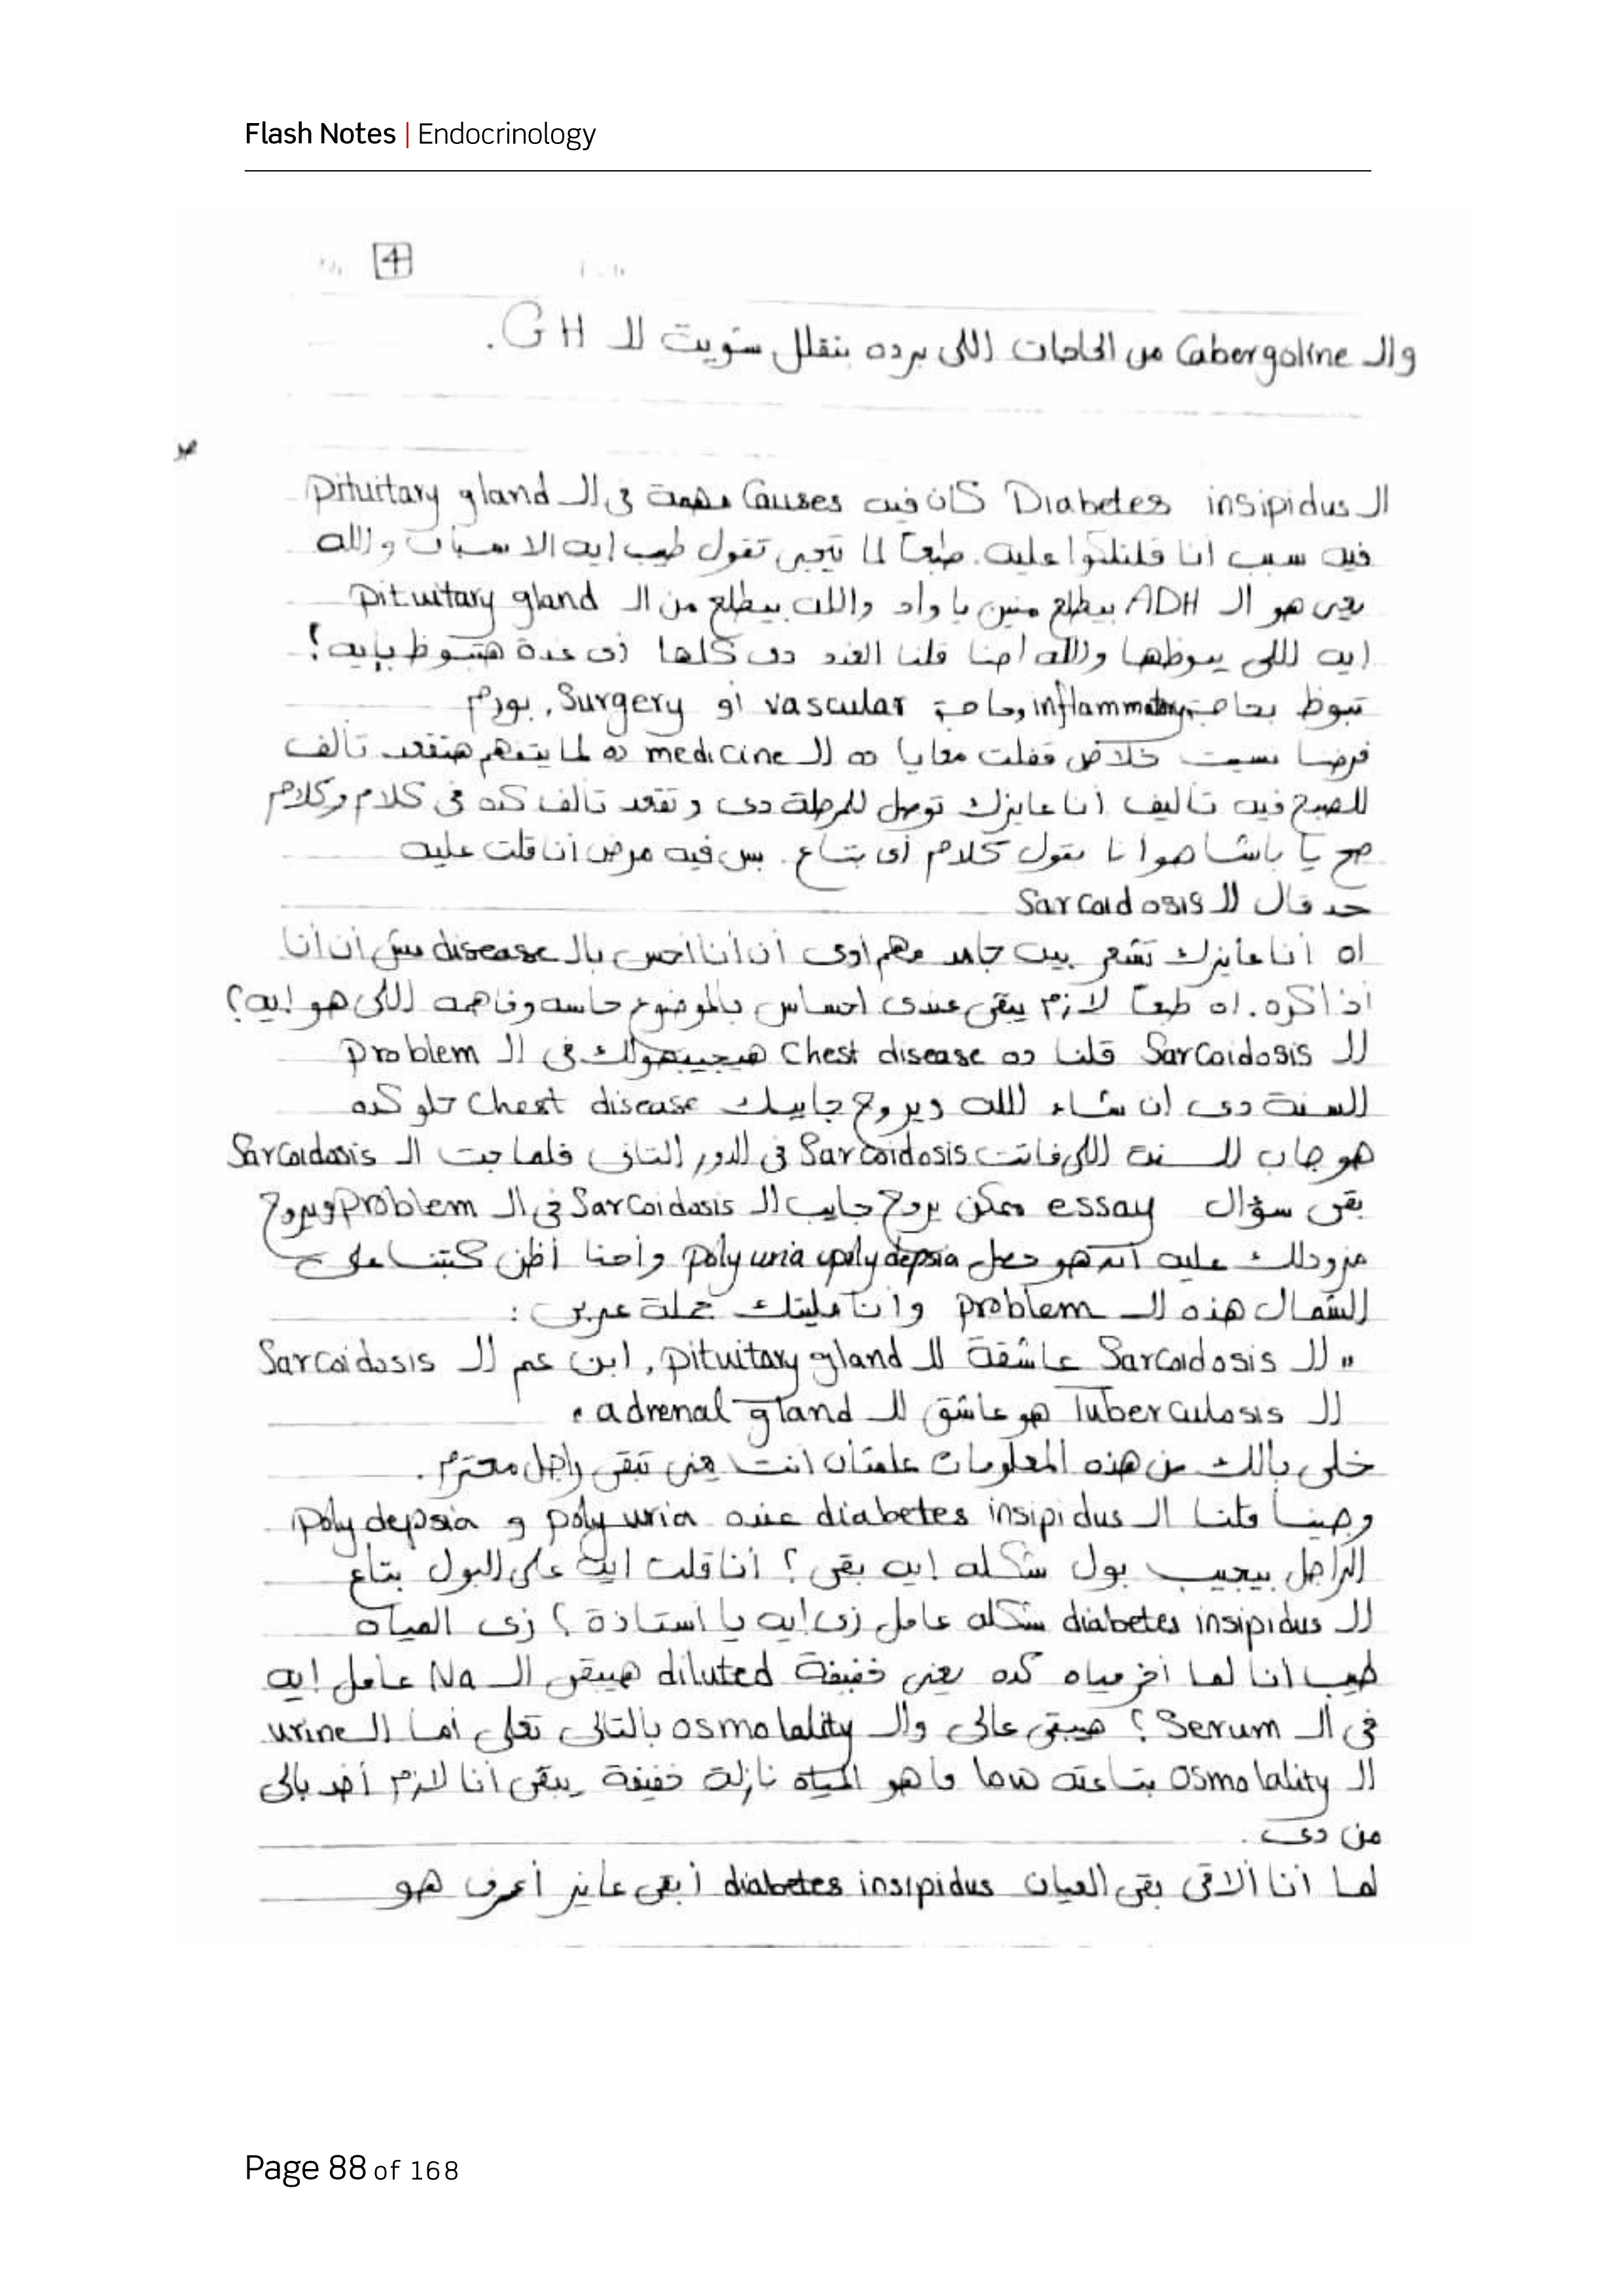 Flash Notes | Endocrinology
4
والـ Cabergoline من الحاجات اللى برده بنقلل شويت للـ GH.
الـ Diabetes insipidus كان فيه Causes مهمة فى الـ Pituitary gland
فيه سبب أنا قلتلكوا عليه. طبعاً لما تيجى تقول طيب ايه الاسباب والله
يعنى هو الـ ADH بيطلع منين يا واد والله بيطلع من الـ Pituitary gland
ايه اللى يبوظها والله احنا قلنا الغدد دى كلها زى غدة هتبوظ بإيه؟
تبوظ بحاجة inflammatory وحاجة vascular أو Surgery, بورم
فرضاً نسيت خلاص قفلت معايا ده الـ medicine ده لما يتفهم هتقعد تألف
للصبح فيه تأليف أنا عايزك توصل للمرحلة دى وتقعد تألف كده فى كلام وكلام
صح يا باشا هو انا بقول كلام أى بتاع. بس فيه مرض أنا قلت عليه
حد قال الـ Sarcoidosis
اه أنا عايزك تشعر بيت جامد مهم أوى أن أنا أحس بالـ disease مش أن أنا
أذاكره. اه طبعاً لازم يبقى عندى احساس بالموضوع حاسه وفاهمه اللى هو ايه؟
الـ Sarcoidosis قلنا ده Chest disease هيجيبهولك فى الـ Problem
السنة دى ان شاء الله ويروح جايبلك Chest disease حلو كده
هو جاب السنة اللى فاتت Sarcoidosis فى الدور التانى فلما جت الـ Sarcoidosis
بقى سؤال essay ممكن يروح جايب الـ Sarcoidosis فى الـ Problem ويروح
مزودلك عليه انه هو حصل poly uria وpoly depsia وأحنا أظن كتبنا على
الشمال هذه الـ problem وأنا مليتك جملة عربى :
" الـ Sarcoidosis عاشقة للـ Pituitary gland, ابن عم الـ Sarcoidosis
الـ Tuberculosis هو عاشق للـ adrenal gland "
خلى بالك من هذه المعلومات علشان انت يعنى تبقى راجل محترم.
وجينا قلنا الـ diabetes insipidus عنده poly uria و Poly depsia
الراجل بيجيب بول شكله ايه بقى؟ أنا قلت ايه على البول بتاع
الـ diabetes insipidus شكله عامل زى ايه يا أستاذة؟ زى المياه
طيب أنا لما أخر مياه كده يعنى خفيفة diluted هيبقى الـ Na عامل ايه
فى الـ Serum؟ هيبقى عالى والـ osmolality بالتالى تعلى أما الـ urine
الـ osmolality بتاعته ما هو المياه نازلة خفيفة يبقى أنا لازم أخد بالى
من دى.
لما أنا ألاقى بقى العيان diabetes insipidus أبقى عايز أعرف هو
Page 88 of 168